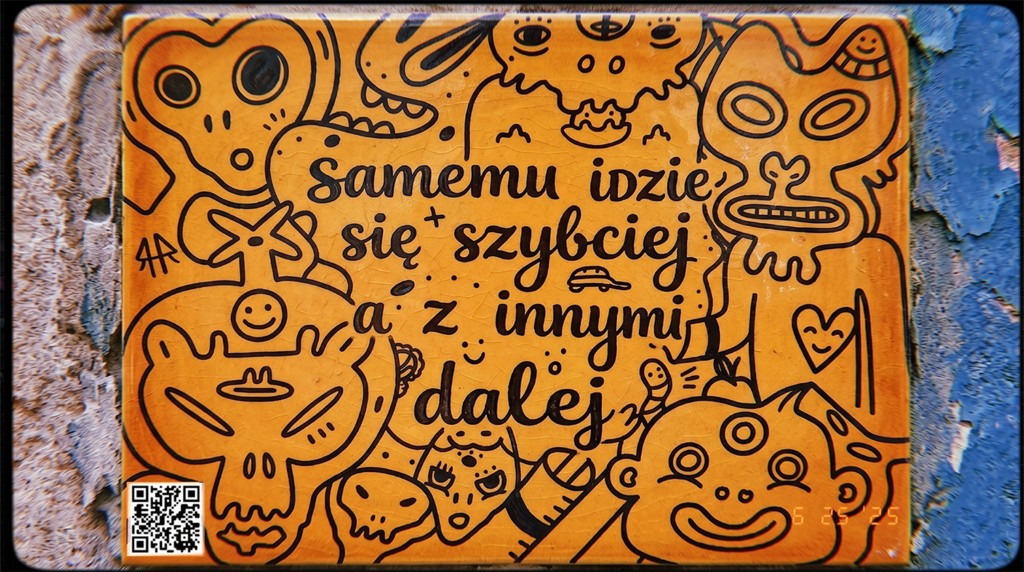 Samemu idzie
się szybciej
a z innymi
dalej
ЯR
6 25 '25